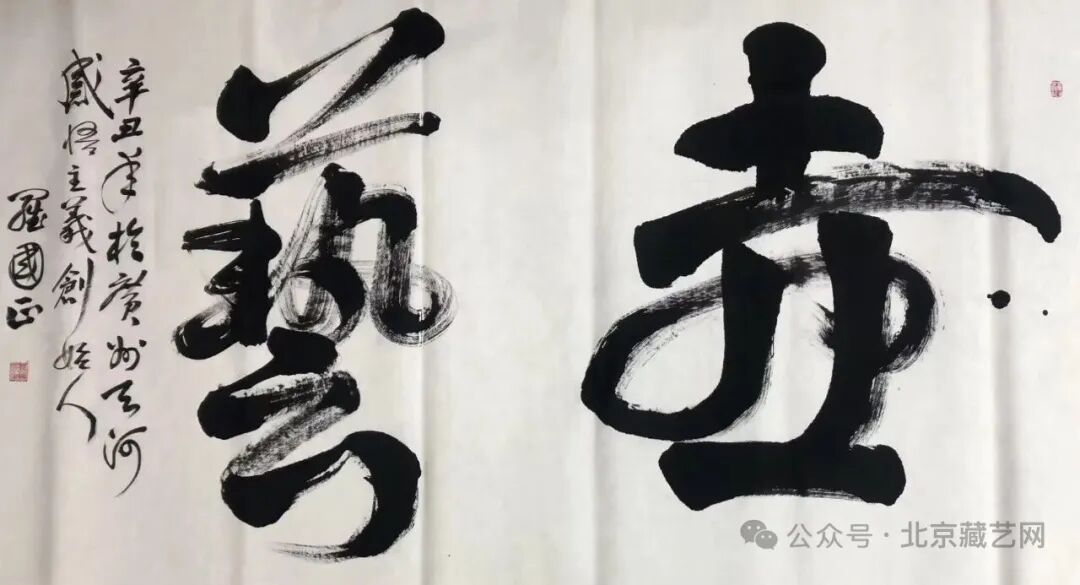 壶藝
辛丑年於廣州天河
感悟主義創始人
羅國正
公众号·北京藏艺网